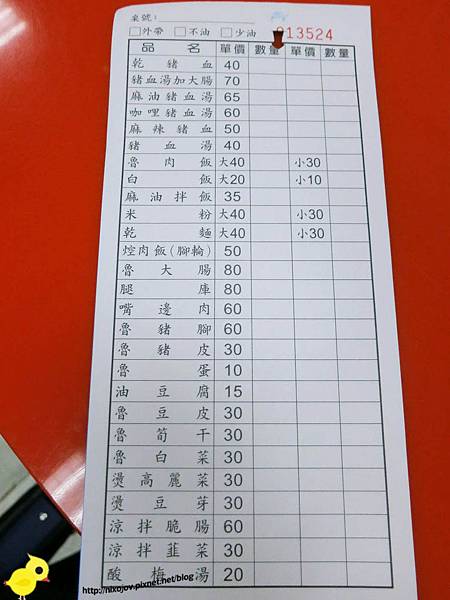 桌號：
□外帶 □不油 □少油 013524
品名 單價 數量 單價 數量
乾豬血 40
豬血湯加大腸 70
麻油豬血湯 65
咖哩豬血湯 60
麻辣豬血 50
豬血湯 40
魯肉飯 大40 小30
白飯 大20 小10
麻油拌飯 35
米粉 大40 小30
乾麵 大40 小30
焢肉飯(腳輪) 50
魯大腸 80
腿庫 80
嘴邊肉 60
魯豬腳 60
魯豬皮 30
魯蛋 10
油豆腐 15
魯豆皮 30
魯筍干 30
魯白菜 30
燙高麗菜 30
燙豆芽 30
涼拌脆腸 60
涼拌韮菜 30
酸梅湯 20
http://nixojov.pixnet.net/blog